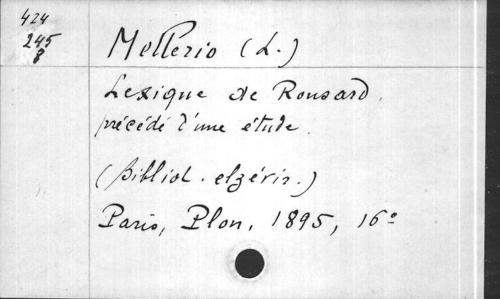 424
245
8
Mellerio (L.)
Lexique de Ronsard,
précédé d'une étude.
(Bibliot. elzévir.)
Paris, Plon, 1895, 16º